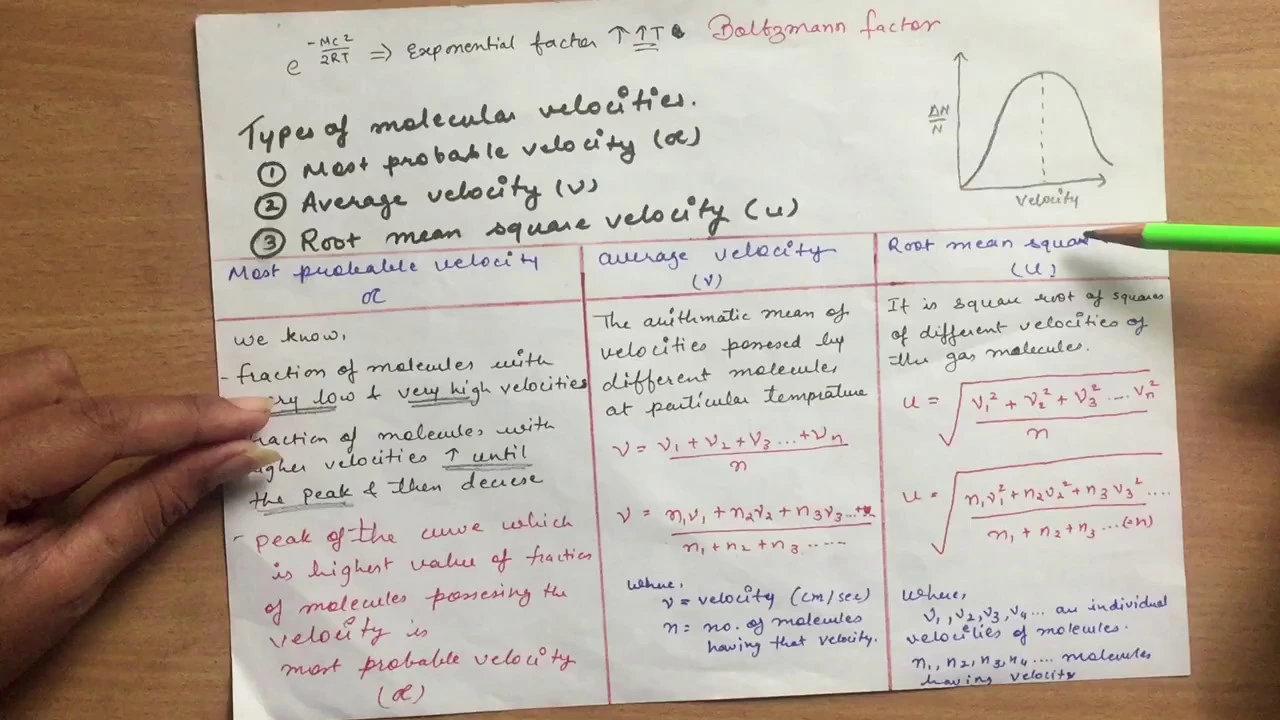 e^(-Mc²/2RT) ⇒ Exponential factor ↑ ↑T Boltzmann factor
Types of molecular velocities.
① Most probable velocity (α)
② Average velocity (v)
③ Root mean square velocity (u)
ΔN/N
velocity
Most probable velocity
α
we know,
- fraction of molecules with
very low & very high velocities
fraction of molecules with
higher velocities ↑ until
the peak & then decrese
- peak of the curve which
is highest value of fraction
of molecules possesing the
velocity is
most probable velocity
(α)
average velocity
(v)
The arithmatic mean of
velocities possesed by
different molecules
at particular temprature
v = (v₁ + v₂ + v₃ ... + vₙ)/n
v = (n₁v₁ + n₂v₂ + n₃v₃ ...)/(n₁ + n₂ + n₃ ......)
where,
v = velocity (cm/sec)
n = no. of molecules
having that velocity.
Root mean square
(u)
It is square root of squares
of different velocities of
the gas molecules.
u = √((v₁² + v₂² + v₃² .... vₙ²)/n)
u = √((n₁v₁² + n₂v₂² + n₃v₃² ....)/(n₁ + n₂ + n₃ ...(=n)))
where,
v₁, v₂, v₃, v₄... an individual
velocities of molecules.
n₁, n₂, n₃, n₄ .... molecules
having velocity